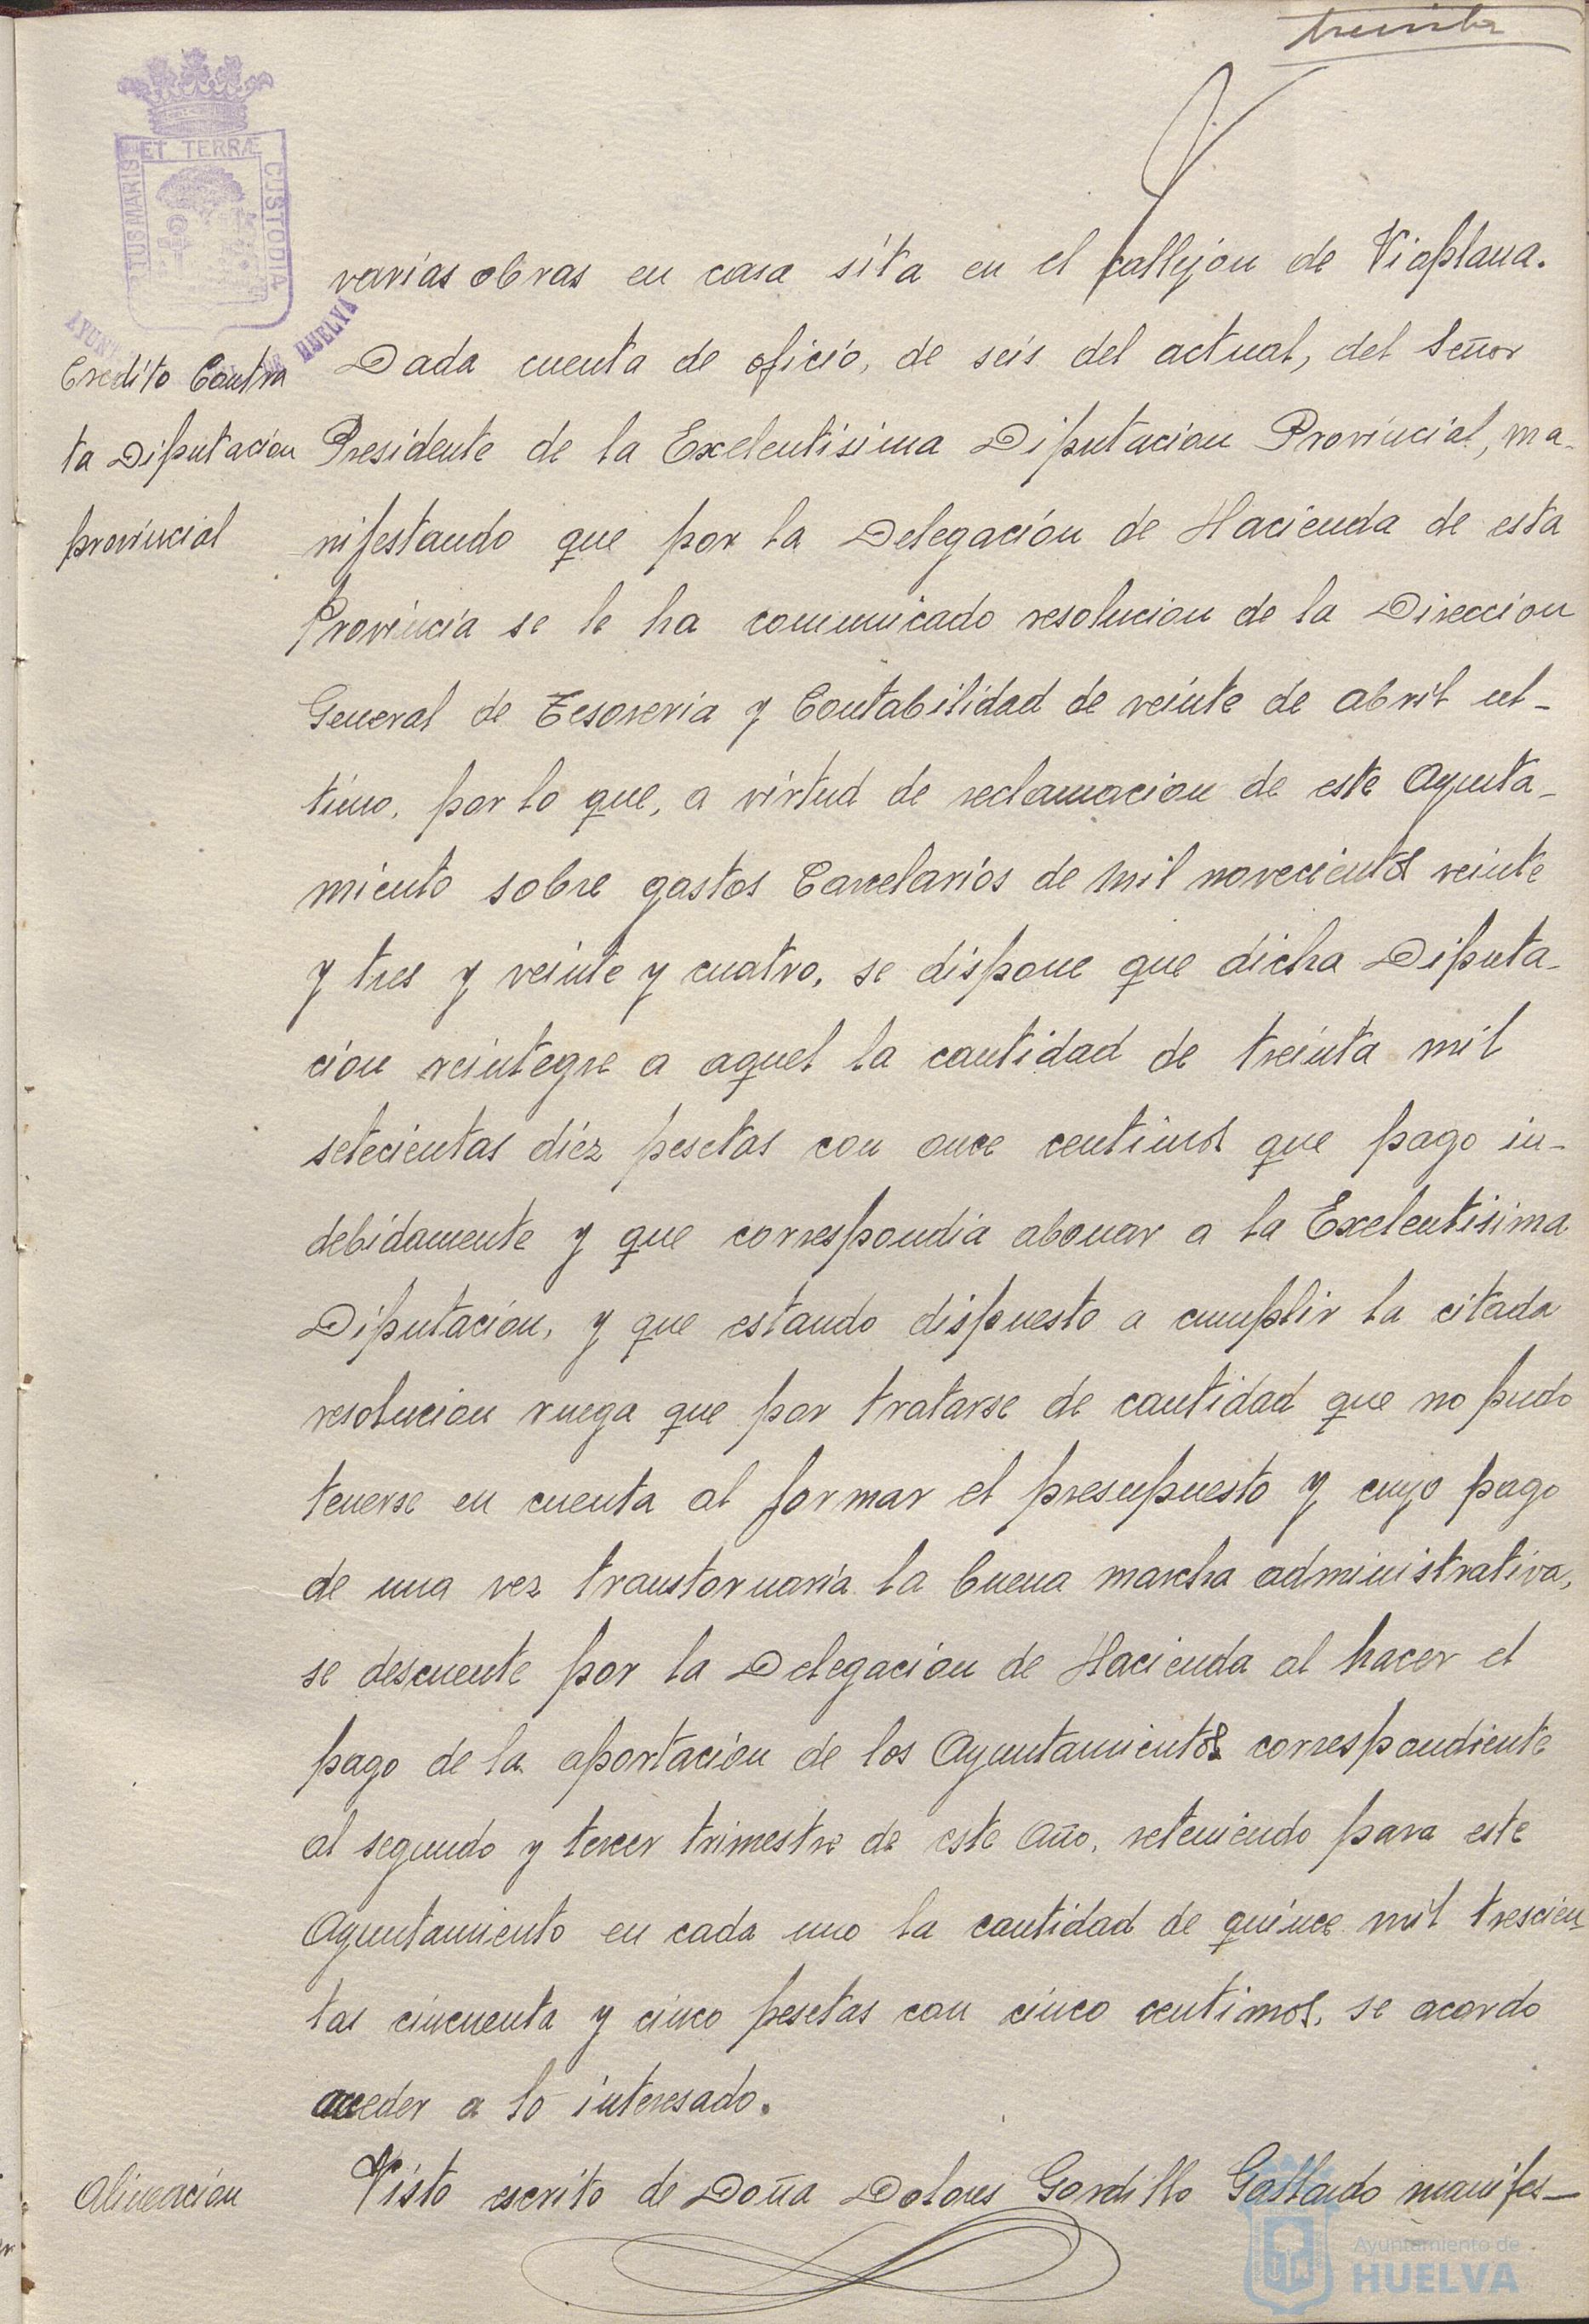 treinta
ET TERRÆ
TUS MARIS
CUSTODIA
DE HUELVA
varias obras en casa sita en el callejon de Vioplana.
Credito Contra
ta Diputacion
provincial
Dada cuenta de oficio, de seis del actual, del Señor
Presidente de la Exelentisima Diputacion Provincial, ma-
nifestando que por la Delegación de Hacienda de esta
Provincia se le ha comunicado resolucion de la Direccion
General de Tesoreria y Contabilidad de veinte de abril ul-
timo, por lo que, a virtud de reclamacion de este Ayunta-
miento sobre gastos Carcelarios de mil novecientos veinte
y tres y veinte y cuatro, se dispone que dicha Diputa-
cion reintegre a aquel la cantidad de treinta mil
setecientas diéz pesetas con once centimos que pago in-
debidamente y que correspondia abonar a la Exelentisima
Diputación, y que estando dispuesto a cumplir la citada
resolucion ruega que por tratarse de cantidad que no pudo
tenerse en cuenta al formar el presupuesto y cuyo pago
de una vez transtornaria la buena marcha administrativa,
se descuente por la Delegación de Hacienda al hacer el
pago de la aportación de los Ayuntamientos correspondiente
al segundo y tercer trimestre de este Año, reteniendo para este
Ayuntamiento en cada uno la cantidad de quince mil trescien-
tas cincuenta y cinco pesetas con cinco centimos, se acordo
acceder a lo interesado.
Alineación
Visto escrito de Doña Dolores Gordillo Gallardo manifes-
Ayuntamiento de
HUELVA